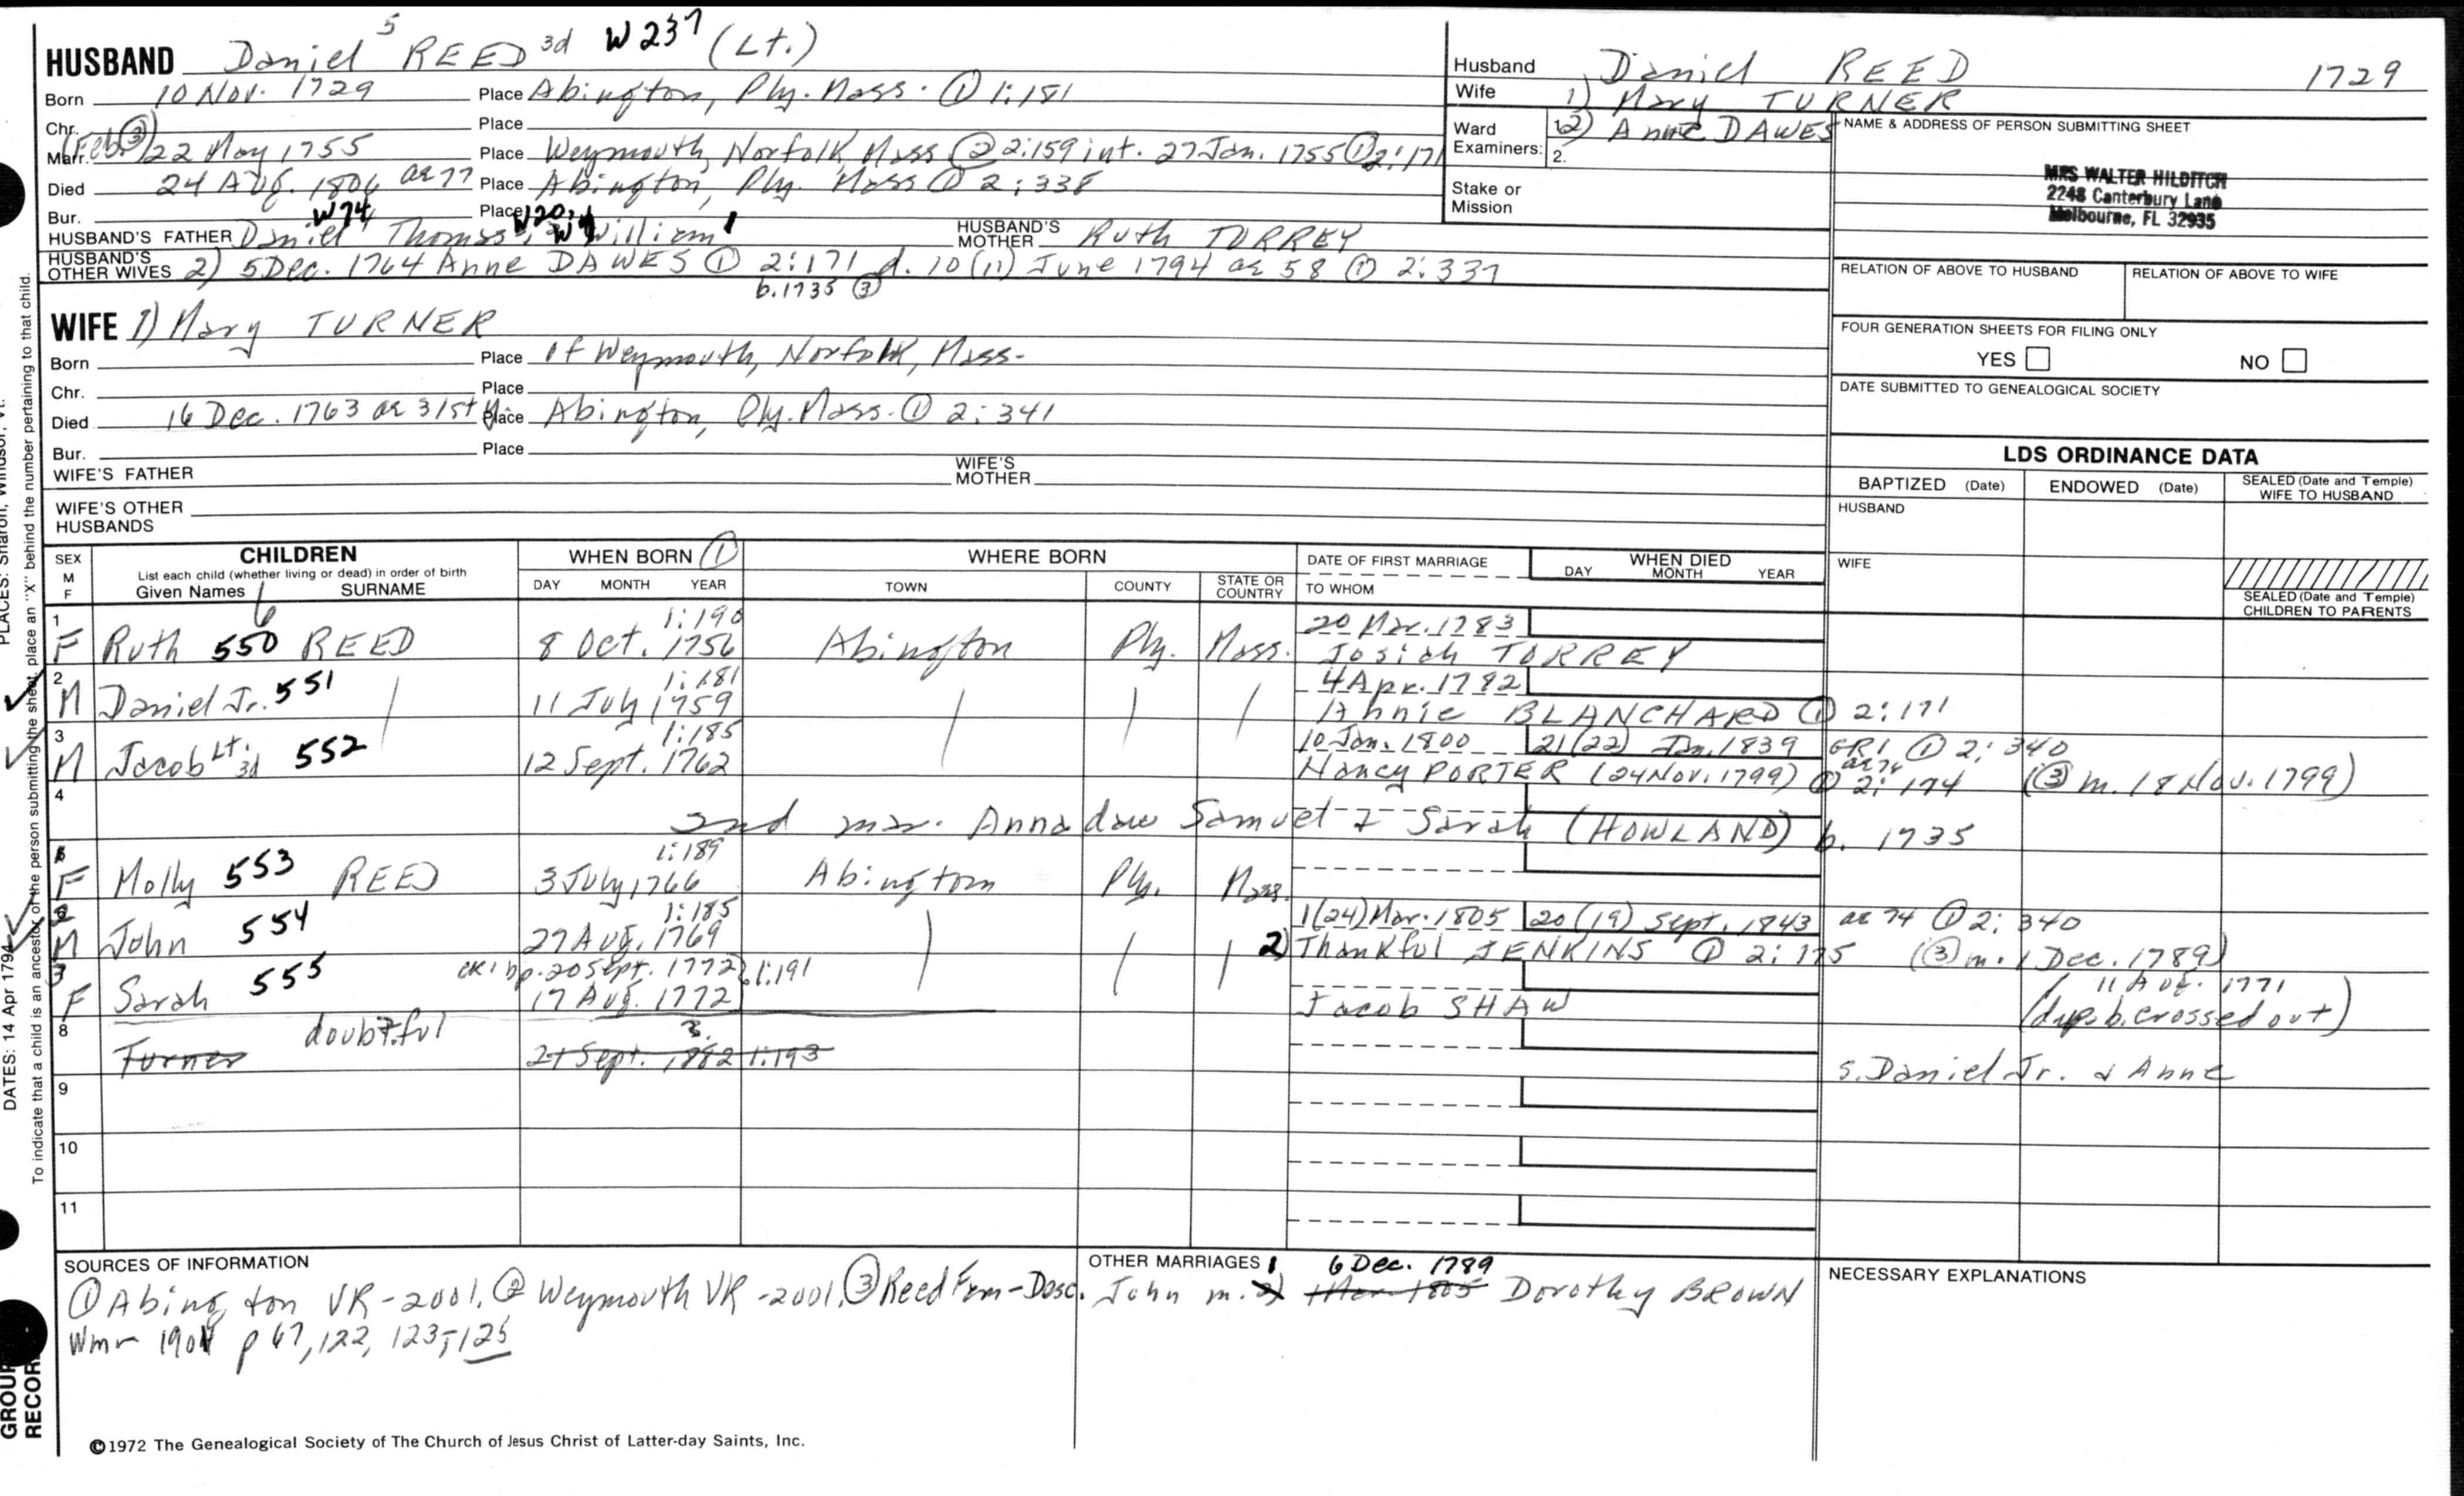 HUSBAND Daniel 5 REED 3d W237 (Lt.)
Born 10 Nov. 1729 Place Abington, Ply. Mass. ① 1:181
Chr. Place
Marr. (Feb. ③) 22 May 1755 Place Weymouth, Norfolk, Mass ② 2:159 int. 27 Jan. 1755 ① 2:171
Died 24 Aug. 1806 ae 77 Place Abington, Ply. Mass ① 2:338
Bur. Place
HUSBAND'S FATHER W74 Daniel Thomas W20 William HUSBAND'S MOTHER Ruth TORREY
HUSBAND'S OTHER WIVES 2) 5 Dec. 1764 Anne DAWES ① 2:171 d. 10 (11) June 1794 ae 58 ① 2:337
b. 1735 ③
WIFE 1) Mary TURNER
Born Place of Weymouth, Norfolk, Mass.
Chr. Place
Died 16 Dec. 1763 ae 31st y. Place Abington, Ply. Mass. ① 2:341
Bur. Place
WIFE'S FATHER WIFE'S MOTHER
WIFE'S OTHER HUSBANDS
Husband Daniel REED 1729
Wife 1) Mary TURNER
2) Anne DAWES
Ward Examiners: 1. 2.
Stake or Mission
NAME & ADDRESS OF PERSON SUBMITTING SHEET
MRS WALTER HILDITCH
2248 Canterbury Lane
Melbourne, FL 32935
RELATION OF ABOVE TO HUSBAND RELATION OF ABOVE TO WIFE
FOUR GENERATION SHEETS FOR FILING ONLY
YES NO
DATE SUBMITTED TO GENEALOGICAL SOCIETY
LDS ORDINANCE DATA
BAPTIZED (Date) ENDOWED (Date) SEALED (Date and Temple) WIFE TO HUSBAND
HUSBAND
WIFE
SEALED (Date and Temple) CHILDREN TO PARENTS
SEX M F CHILDREN WHEN BORN ① WHERE BORN DATE OF FIRST MARRIAGE WHEN DIED
List each child (whether living or dead) in order of birth
Given Names 6 SURNAME DAY MONTH YEAR TOWN COUNTY STATE OR COUNTRY TO WHOM DAY MONTH YEAR
1 1:190 20 Mar. 1783
F Ruth 550 REED 8 Oct. 1756 Abington Ply. Mass. Josiah TORREY
2 1:181 4 Apr. 1782
M Daniel Jr. 551 11 July 1759 Annie BLANCHARD ① 2:171
3 1:185 10 Jan. 1800 21 (22) Jan. 1839 GR1 ① 2:340
M Jacob Lt. 3d 552 12 Sept. 1762 Nancy PORTER (24 Nov. 1799) ① 2:174 ae 76 (③ m. 18 Nov. 1799)
4
2nd mar. Anna daw Samuel & Sarah (HOWLAND) b. 1735
1:189
F Molly 553 REED 3 July 1766 Abington Ply. Mass.
2 1:185 1 (24) Mar. 1805 20 (19) Sept. 1843 ae 74 ① 2:340
M John 554 27 Aug. 1769 2) Thankful JENKINS ① 2:175 (③ m. 1 Dec. 1789)
3 CR1 bp. 20 Sept. 1772 1:191
F Sarah 555 17 Aug. 1772 Jacob SHAW 11 Aug. 1771 (dup. b. crossed out)
8 doubtful
Turner 21 Sept. 1:193 s. Daniel Jr. & Anne
9
10
11
SOURCES OF INFORMATION
① Abington VR-2001. ② Weymouth VR-2001. ③ Reed Fam-Desc.
Wm 1901 p 67, 122, 123-125
OTHER MARRIAGES
John m. 1 6 Dec. 1789 Dorothy BROWN
NECESSARY EXPLANATIONS
©1972 The Genealogical Society of The Church of Jesus Christ of Latter-day Saints, Inc.
To indicate that a child is an ancestor of the person submitting the sheet, place an "X" behind the number pertaining to that child.
DATES: 14 Apr 1794
PLACES: Sharon, Windsor, Vt.
GROUP RECORD